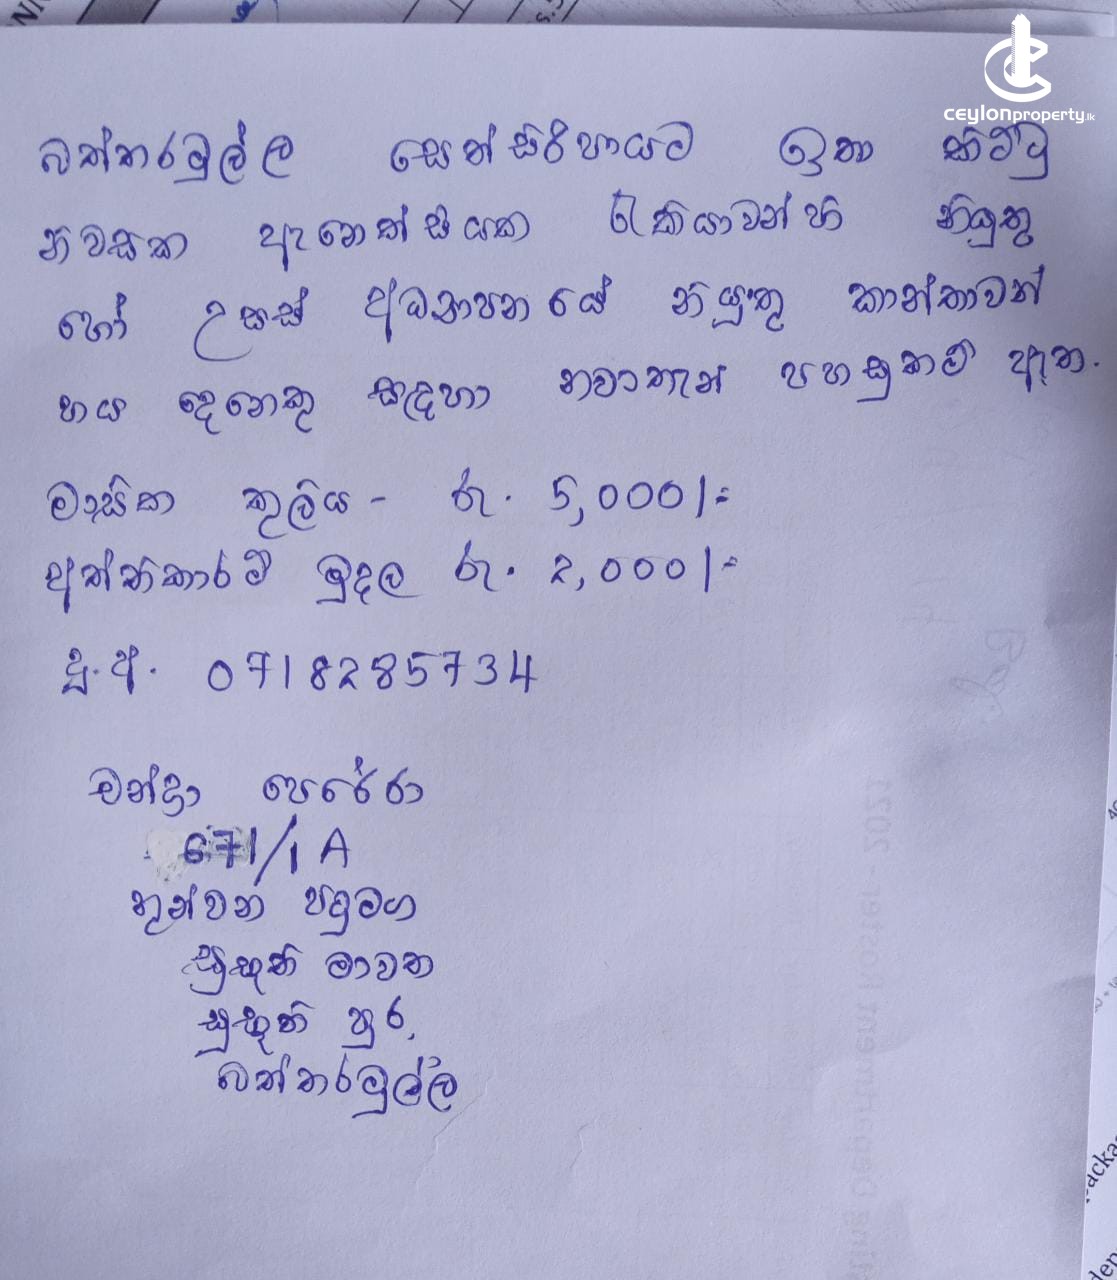 ceylonproperty.lk
බත්තරමුල්ල සෙත්සිරිපායට ඉතා කිට්ටු
නිවසක ඇනෙක්සියක රැකියාවන්හි නියුතු
හෝ උසස් අධ්‍යාපනයේ නියුතු කාන්තාවන්
හය දෙනෙකු සඳහා නවාතැන් පහසුකම් ඇත.
මාසික කුලිය - රු. 5,000/=
අත්තිකාරම් මුදල රු. 2,000/=
දු.අ. 0718285734
චන්ද්‍රා පෙරේරා
671/1A
තුන්වන පටුමග
සුභූති මාවත
සුභූති පුර,
බත්තරමුල්ල
Department Roster - 2021